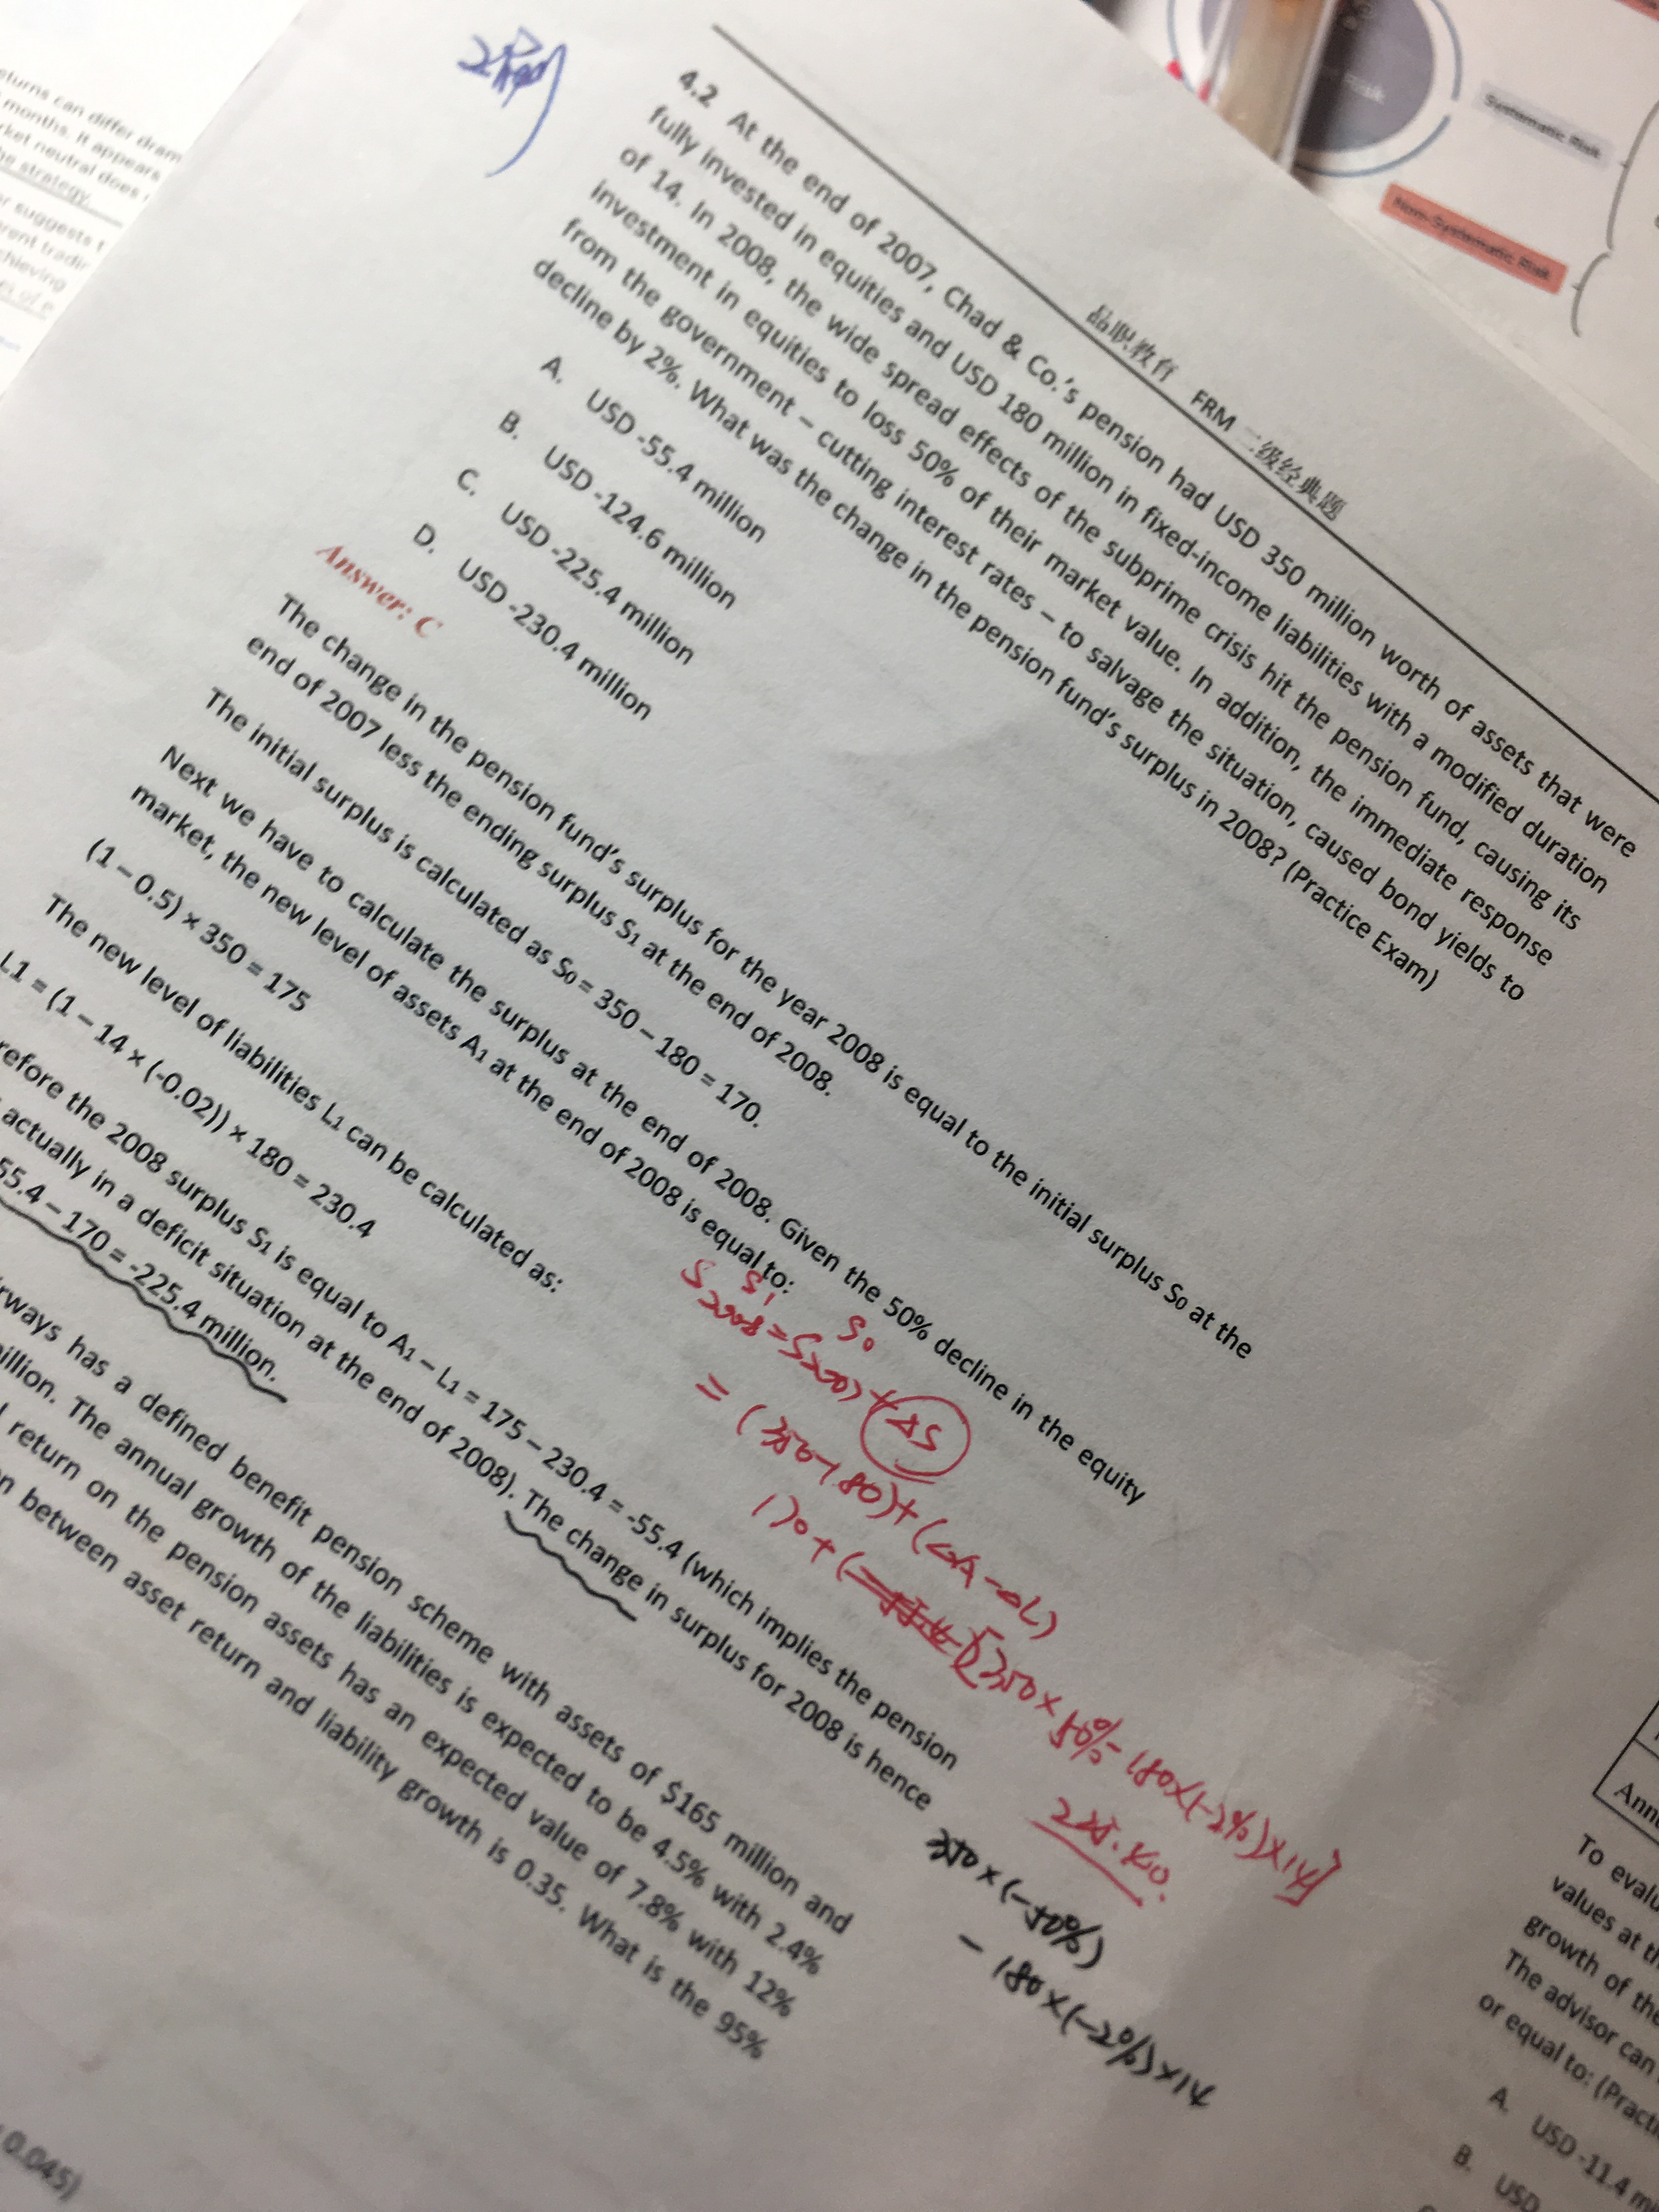 eturns can differ dram
months. It appears
ket neutral does
he strategy.
r suggests t
erent tradin
chieving
Systematic Risk
Non-Systematic Risk
品职教育 FRM 二级经典题
4.2 At the end of 2007, Chad & Co.'s pension had USD 350 million worth of assets that were
fully invested in equities and USD 180 million in fixed-income liabilities with a modified duration
of 14. In 2008, the wide spread effects of the subprime crisis hit the pension fund, causing its
investment in equities to loss 50% of their market value. In addition, the immediate response
from the government – cutting interest rates – to salvage the situation, caused bond yields to
decline by 2%. What was the change in the pension fund's surplus in 2008? (Practice Exam)
A. USD -55.4 million
B. USD -124.6 million
C. USD -225.4 million
D. USD -230.4 million
Answer: C
The change in the pension fund's surplus for the year 2008 is equal to the initial surplus S0 at the
end of 2007 less the ending surplus S1 at the end of 2008.
The initial surplus is calculated as S0 = 350 – 180 = 170.
Next we have to calculate the surplus at the end of 2008. Given the 50% decline in the equity
market, the new level of assets A1 at the end of 2008 is equal to:
(1 – 0.5) × 350 = 175
The new level of liabilities L1 can be calculated as:
L1 = (1 – 14 × (-0.02)) × 180 = 230.4
refore the 2008 surplus S1 is equal to A1 – L1 = 175 – 230.4 = -55.4 (which implies the pension
actually in a deficit situation at the end of 2008). The change in surplus for 2008 is hence
55.4 – 170 = -225.4 million.
S1 S0
S2008 = S2007 + ΔS
= (350-180) + (ΔA-ΔL)
170 + [350×50%-180×(-2%)×14]
350×(-50%)
-180×(-2%)×14
rways has a defined benefit pension scheme with assets of $165 million and
illion. The annual growth of the liabilities is expected to be 4.5% with 2.4%
return on the pension assets has an expected value of 7.8% with 12%
n between asset return and liability growth is 0.35. What is the 95%
0.045)
Ann
To evalu
values at th
growth of the
The advisor can
or equal to: (Practi
A. USD -11.4 m
B. USD